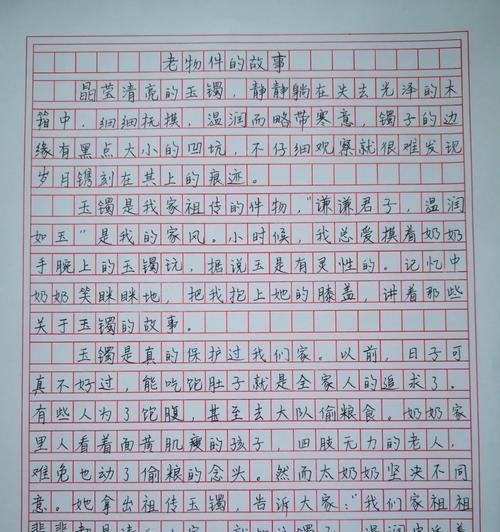 老物件的故事
晶莹清亮的玉镯，静静躺在失去光泽的木
箱中，细细抚摸，温润而略带寒意，镯子的边
缘有黑点大小的凹坑，不仔细观察就很难发现
岁月镌刻在其上的痕迹。
玉镯是我家祖传的件物，“谦谦君子，温润
如玉”是我的家风。小时候，我总爱摸着奶奶
手腕上的玉镯玩，据说玉是有灵性的。记忆中
奶奶笑眯眯地，把我抱上她的膝盖，讲着那些
关于玉镯的故事。
玉镯是真的保护过我们家。以前，日子可
真不好过，能吃饱肚子就是全家人的追求了。
有些人为了饱腹，甚至去大队偷粮食。奶奶家
里人看着面黄肌瘦的孩子，四肢无力的老人，
难免也动了偷粮的念头。然而太奶奶坚决不同
意。她拿出祖传玉镯，告诉大家：“我们家祖祖
辈辈都是清